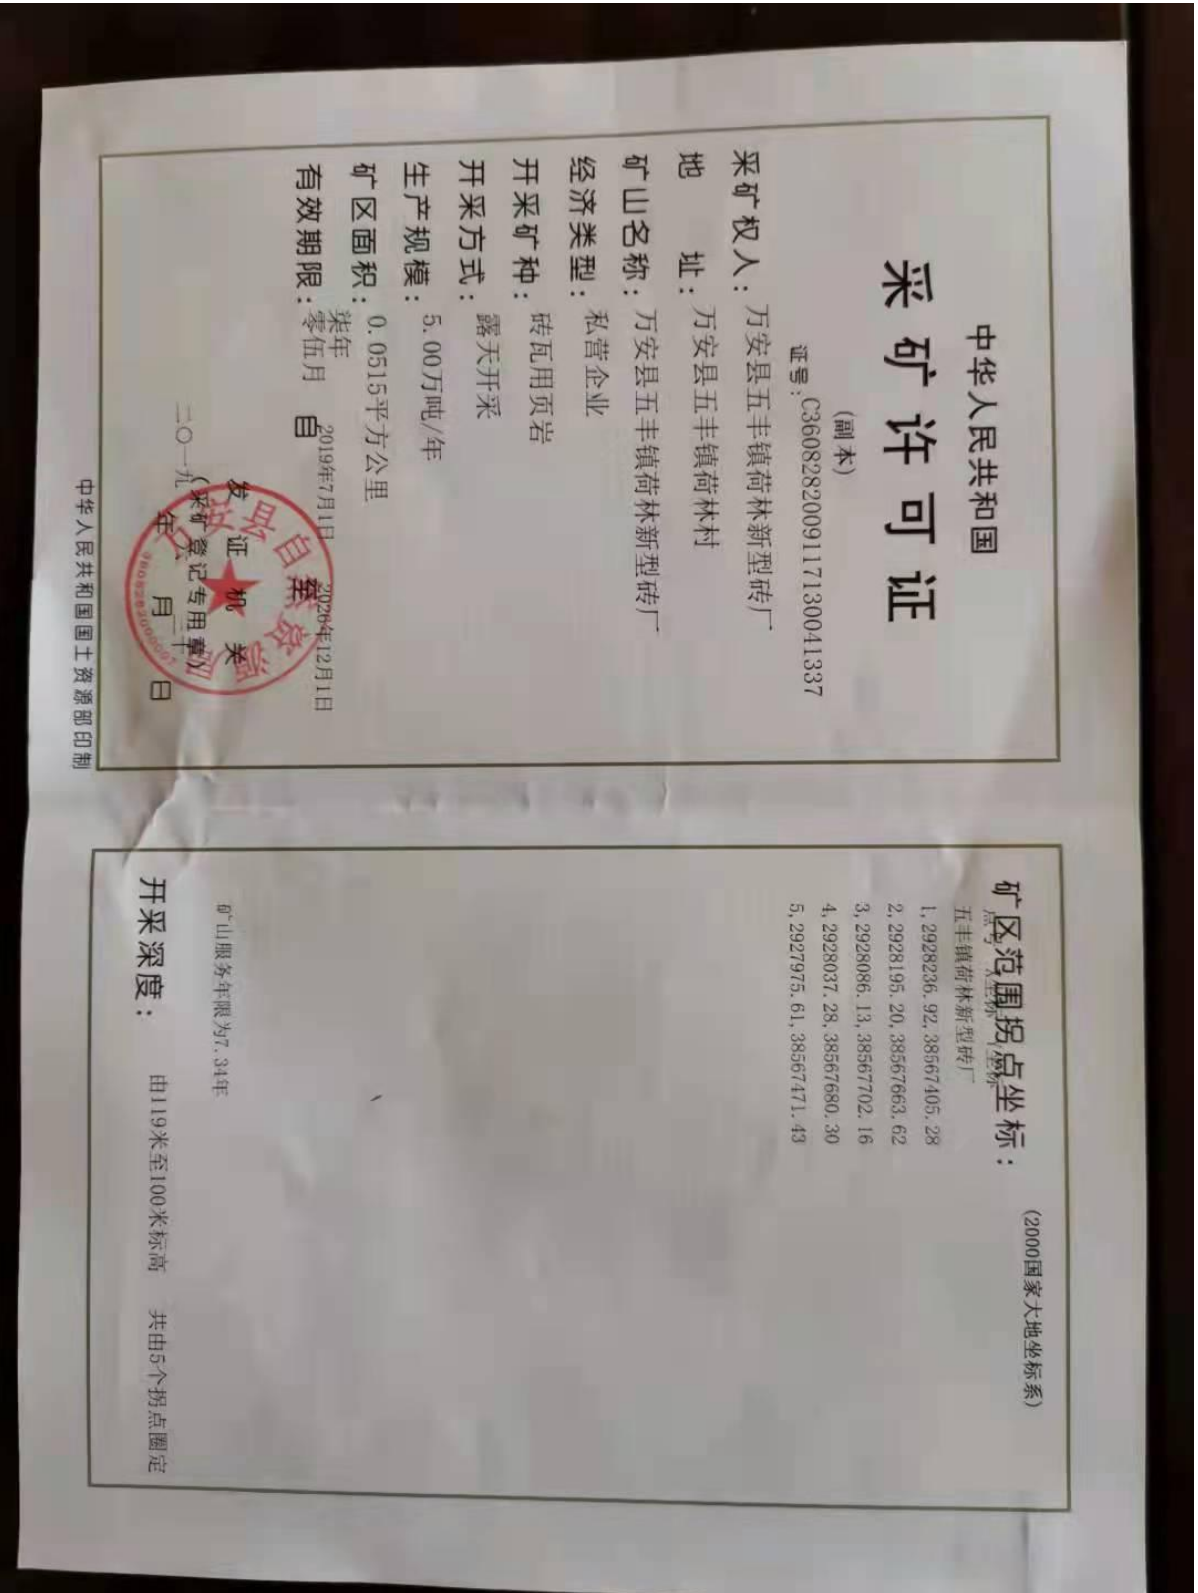 中华人民共和国
采矿许可证
(副本)
证号:C3608282009117130041337
采矿权人:万安县五丰镇荷林新型砖厂
地址:万安县五丰镇荷林村
矿山名称:万安县五丰镇荷林新型砖厂
经济类型:私营企业
开采矿种:砖瓦用页岩
开采方式:露天开采
生产规模:5.00万吨/年
矿区面积:0.0515平方公里
有效期限:柒年零伍月 自 2019年7月1日 至 2026年12月1日
发证机关
(采矿登记专用章)
二〇一九年 月 日
中华人民共和国国土资源部印制
矿区范围拐点坐标:
(2000国家大地坐标系)
点号 X坐标 Y坐标
五丰镇荷林新型砖厂
1,2928236.92,38567405.28
2,2928195.20,38567663.62
3,2928086.13,38567702.16
4,2928037.28,38567680.30
5,2927975.61,38567471.43
矿山服务年限为7.34年
开采深度: 由119米至100米标高 共由5个拐点圈定